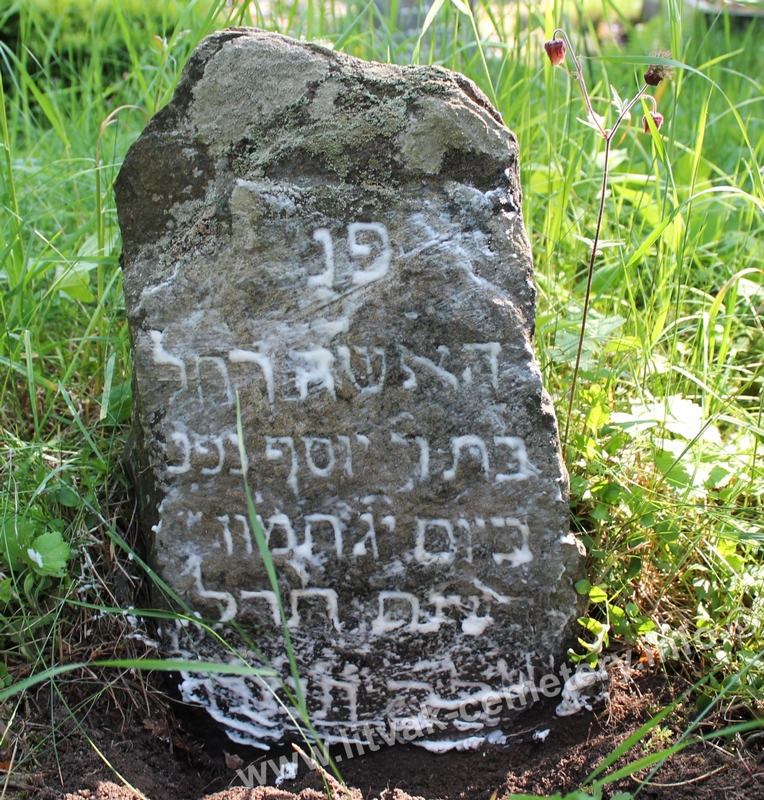 פנ
האשה רחל
בת ר יוסף נפט
ביום יג תמוז
שנת תרל
www.litvak-cemetery.info